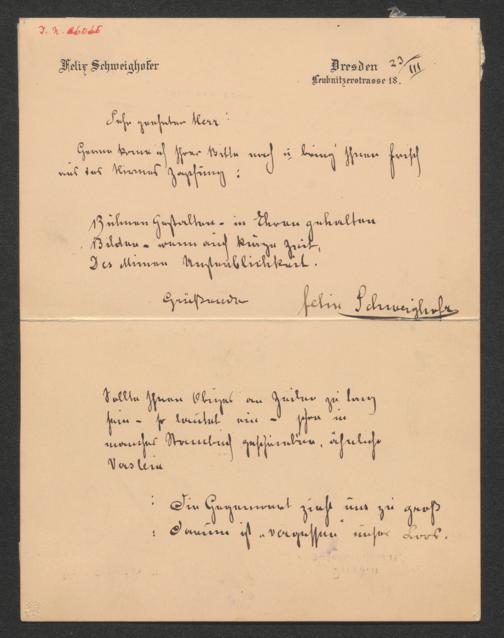 J. N. 46066
Felix Schweighofer
Dresden 23/III
Leubnitzerstrasse 18.
Sehr geehrter Herr!
Gerne kome ich Ihrer Bitte nach u. bring' Ihnen frisch
aus des Hirnes Zapfung:
Bühnen Gestalten – in Ehren gehalten
Bilden – wenn auch kurze Zeit,
Des Mimen Unsterblichkeit.
Grüßend
Felix Schweighofer
Sollte Ihnen Obiges an Zeilen zu lang
sein – so lautet ein – schon in
manches Stambuch geschriebener, ähnliche
Verslein
: Die Gegenwart zieht uns zu groß
: Darum ist „vergessen" unser Loos.